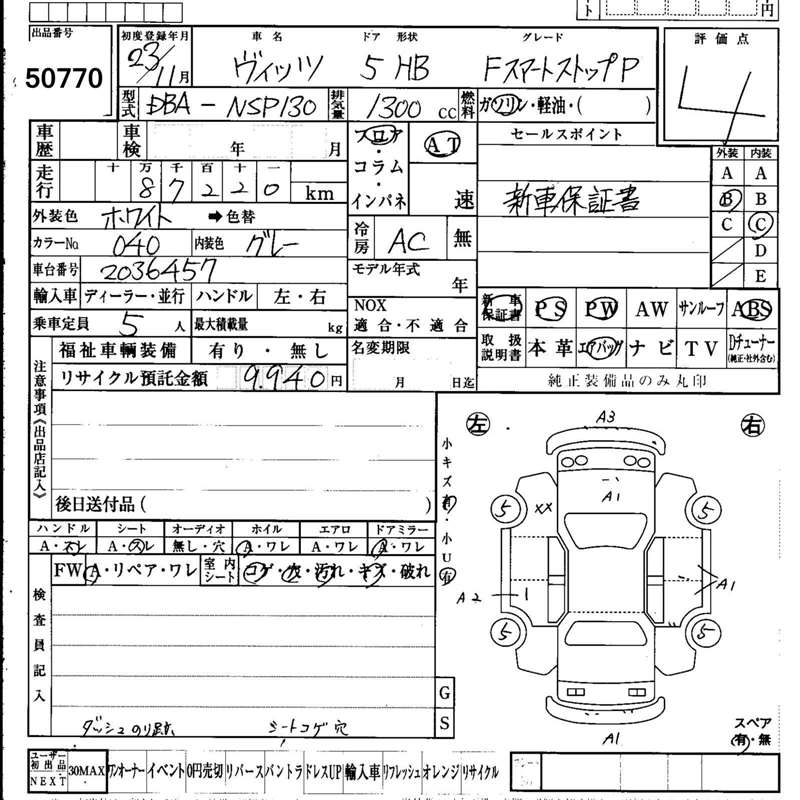 出品番号
50770
初度登録年月
23/11月
車名 ドア 形状 グレード
ヴィッツ 5 HB FスマートストップP
評価点
4
型式 DBA-NSP130 排気量 1300 cc 燃料 ガソリン・軽油・( )
車歴 車検 年 月
フロア・コラム・インパネ
AT
速
セールスポイント
新車保証書
外装 内装
A A
B B
C C
D
E
走行 十万千百十一
87220 km
外装色 ホワイト ➡色替
カラーNo 040 内装色 グレー
冷房 AC 無
車台番号 2036457
モデル年式 年
輸入車 ディーラー・並行 ハンドル 左・右
NOX
適合・不適合
新車保証書 PS PW AW サンルーフ ABS
乗車定員 5人 最大積載量 kg
取扱説明書 本革 エアバッグ ナビ TV Dチューナー
(純正・社外含む)
純正装備品のみ丸印
福祉車輌装備 有り・無し
名変期限
月 日迄
リサイクル預託金額 9.940円
注意事項《出品店記入》
後日送付品( )
小キズ有・小U有
左 右
A3
A1
XX
5 5
A2
A1
5 5
A1
スペア
有・無
ハンドル シート オーディオ ホイル エアロ ドアミラー
A・スレ A・スレ 無し・穴 A・ワレ A・ワレ A・ワレ
FW A・リペア・ワレ 室内シート コゲ・穴・汚れ・キズ・破れ
検査員記入
ダッシュのり跡 シートコゲ穴
G
S
ユーザー初出品NEXT 30MAX ワンオーナー イベント 0円売切 リバース バントラ ドレスUP 輸入車 リフレッシュ オレンジ リサイクル